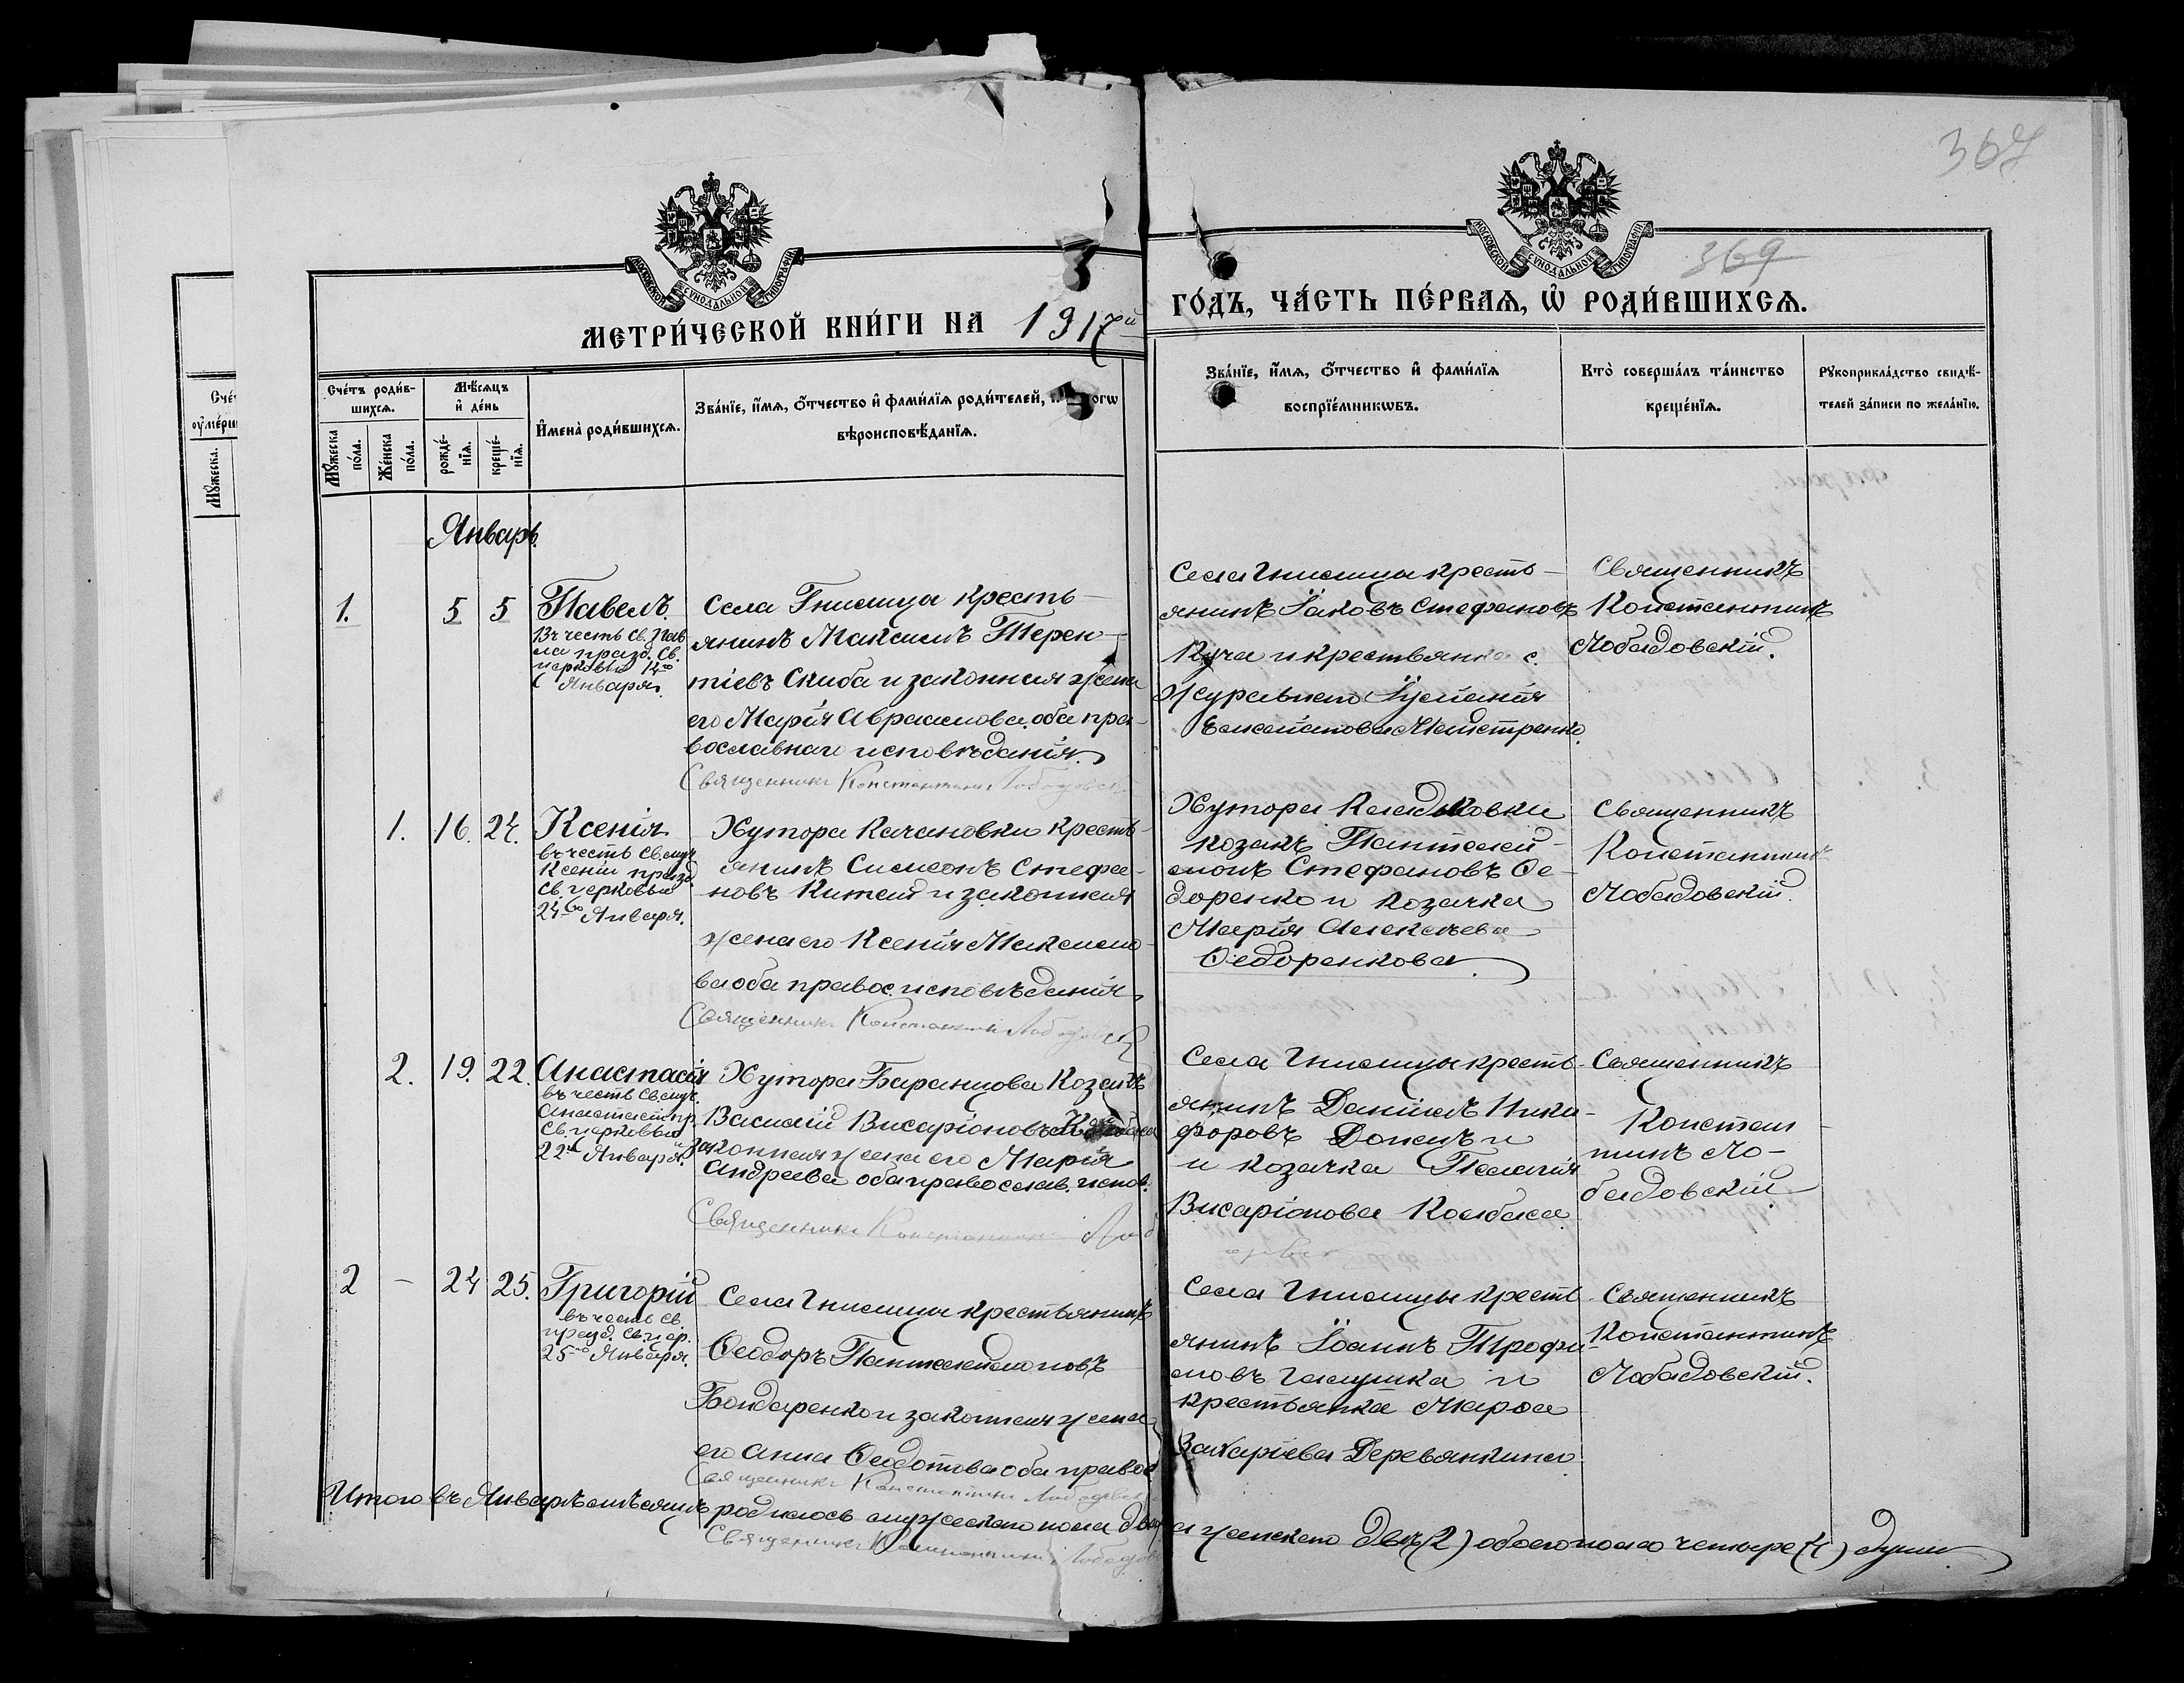 367
369
МОСКОВСКОЙ СѴНОДАЛЬНОЙ ТИПОГРАФІИ
МОСКОВСКОЙ СѴНОДАЛЬНОЙ ТИПОГРАФІИ
МЕТРИ́ЧЕСКОЙ КНИ́ГИ НА 1917й ГО́ДЪ, ЧА́СТЬ ПЕ́РВАѦ, Ѡ҆ РОДИ́ВШИХСѦ.
Сче́тъ роди́в-
шихсѧ.
Мꙋ́жеска по́ла.
Же́нска по́ла.
Мѣ́сѧцъ
и҆ де́нь
рожде́-
нїѧ.
креще́-
нїѧ.
И҆мена̀ роди́вшихсѧ.
Зва́нїе, и҆́мѧ, ѻ҆́тчество и҆ фами́лїѧ роди́телей,
вѣроисповѣ́данїѧ.
Зва́нїе, и҆́мѧ, ѻ҆́тчество и҆ фами́лїѧ
воспрїе́мникѡвъ.
Кто̀ соверша́лъ та́инство
креще́нїѧ.
Рꙋкоприкла́дство свидѣ́-
телей за́писи по жела́нїю.
Январь.
1.
5 5
Павелъ.
Въ честь св. Пав-
ла празд. св.
церковью
Января.
Села Гнилицы кресть-
янинъ Максимъ Терен-
тіевъ Скиба и законная жена
его Марія Авраамова, оба пра-
вославнаго исповѣданія.
Священникъ Константинъ Лободовск
Села Гнилицы кресть-
янинъ Іаковъ Стефановъ
Куча и крестьянка с.
Священникъ
Константинъ
Лободовскій.
1. 16. 24.
Ксенія
въ честь св. муч.
Ксеніи празд.
св. церковью
24го Января.
Хутора Качановки кресть-
янинъ Симеонъ Стефа-
новъ и законная
жена его Ксенія Максимо-
ва оба правос. исповѣданія
Священникъ Константинъ Лободовск
Хутора
козакъ Пантелей-
монъ Стефановъ Ѳе-
доренко и козачка
Марія Алексѣева
Ѳедоренкова
Священникъ
Константинъ
Лободовскій.
2. 19. 22.
Анастасія
въ честь св. муч.
Анастасіи пр.
св. церковью
22го Января.
Хутора Баранцова Козакъ
Василій Висаріоновъ
и законная жена его Марія
Андреева оба православ. испов.
Священникъ Константинъ Лоб
Села Гнилицы кресть-
янинъ Даніилъ Ники-
форовъ Донецъ и
и козачка Пелагія
Висаріонова Колбаса
Священникъ
Констан-
тинъ Ло-
бодовскій
2 - 24 25.
Григорій
въ честь св.
празд. св. цер.
25го Января.
Села Гнилицы крестьянинъ
Ѳеодоръ Пантелеимоновъ
Бондаренко и законная жена
его Анна Ѳедотова оба правос
Священникъ Константинъ Лободовск
Села Гнилицы кресть-
янинъ Іоаннъ Трофи-
мовъ Галушка и
крестьянка
Захаріева Деревянкина
Священникъ
Константинъ
Лободовскій.
Итого въ Январѣ мѣсяцѣ родилось мужескаго пола два а женскаго двѣ (2) обоего пола четыре (4) души
Священникъ Константинъ Лободовс